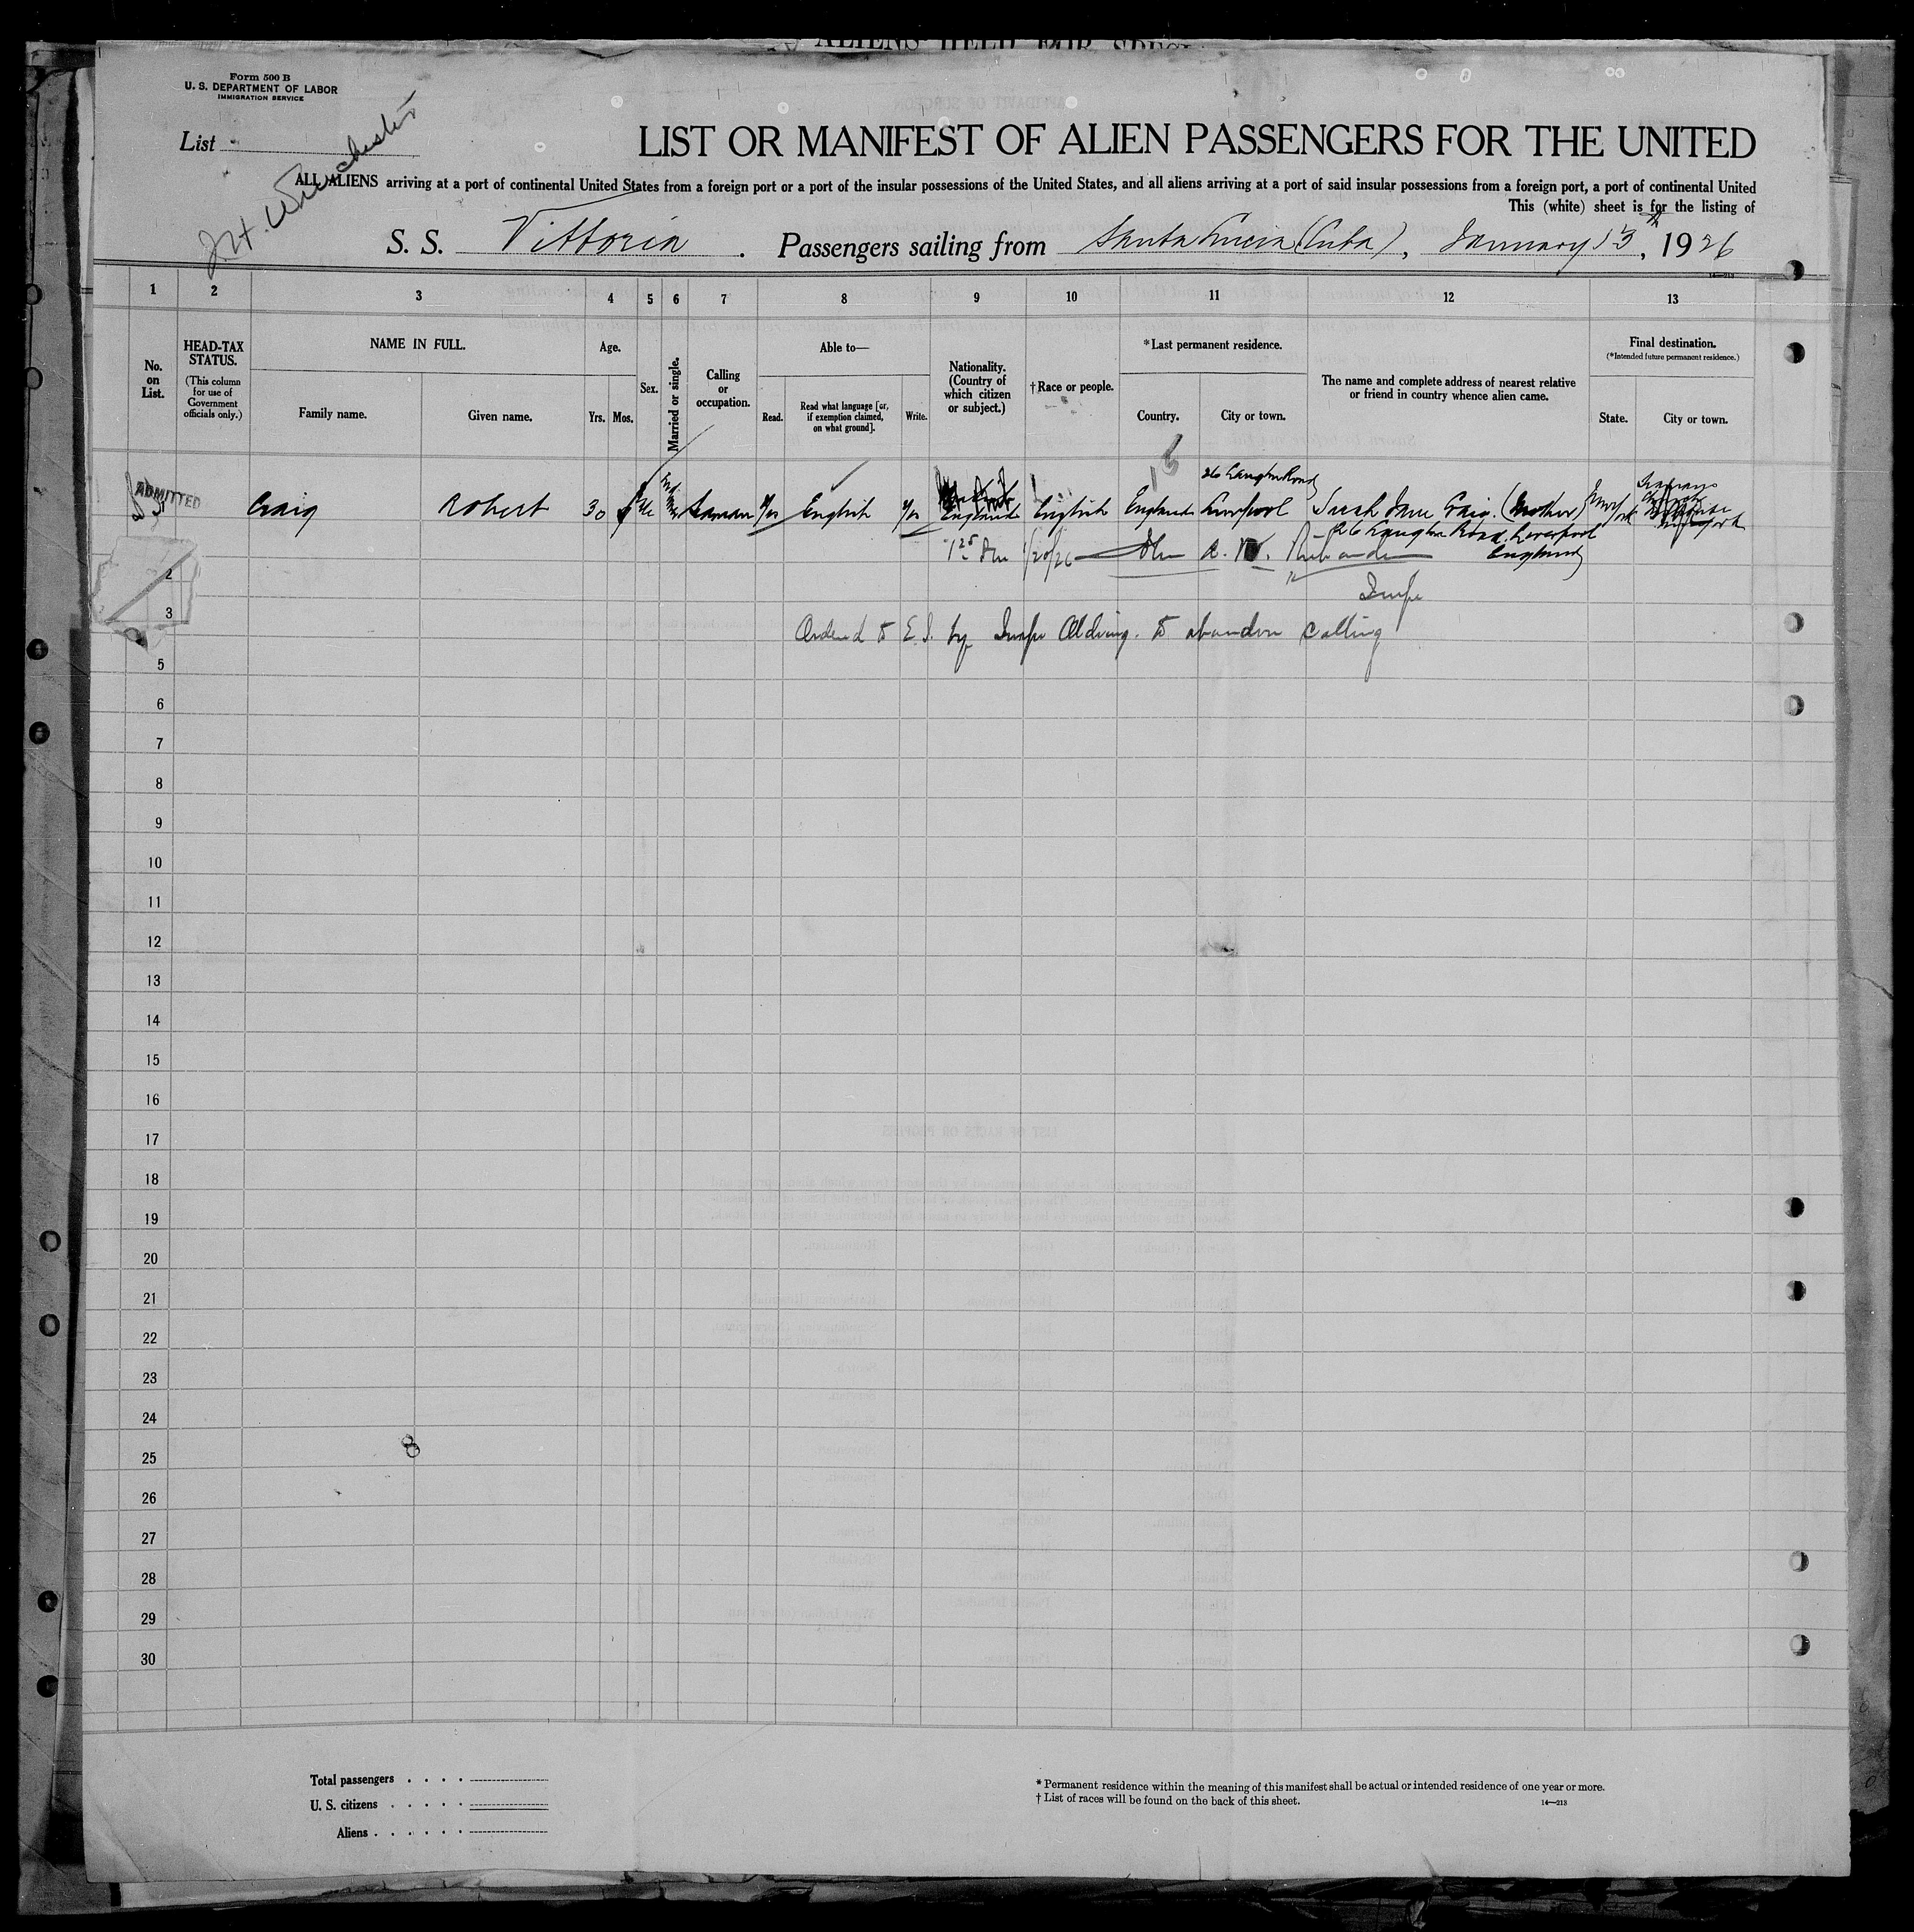 Form 500 B
U. S. DEPARTMENT OF LABOR
IMMIGRATION SERVICE
List
LIST OR MANIFEST OF ALIEN PASSENGERS FOR THE UNITED
ALL ALIENS arriving at a port of continental United States from a foreign port or a port of the insular possessions of the United States, and all aliens arriving at a port of said insular possessions from a foreign port, a port of continental United
This (white) sheet is for the listing of
J.H. Winchester
S. S. Vittoria . Passengers sailing from Santa Lucia (Cuba), January 13th, 1926
14—213
1 2 3 4 5 6 7 8 9 10 11 12 13
No. on List.
HEAD-TAX STATUS.
(This column for use of Government officials only.)
NAME IN FULL.
Family name.
Given name.
Age.
Yrs. Mos.
Sex.
Married or single.
Calling or occupation.
Able to—
Read.
Read what language [or, if exemption claimed, on what ground].
Write.
Nationality. (Country of which citizen or subject.)
† Race or people.
* Last permanent residence.
Country.
City or town.
The name and complete address of nearest relative or friend in country whence alien came.
Final destination.
(* Intended future permanent residence.)
State.
City or town.
ADMITTED
26 Langton Road
Craig Robert 30 Seaman Yes English Yes England English England Liverpool Sarah Jane Craig. (Mother) New York
26 Langton Road, Liverpool
England
1/20/26
Insp
Ordered to E.I. by Insp to abandon calling
2
3
5
6
7
8
9
10
11
12
13
14
15
16
17
18
19
20
21
22
23
24
8
25
26
27
28
29
30
Total passengers . . . .
U. S. citizens . . . . .
Aliens . . . . . .
* Permanent residence within the meaning of this manifest shall be actual or intended residence of one year or more.
† List of races will be found on the back of this sheet.
14—213